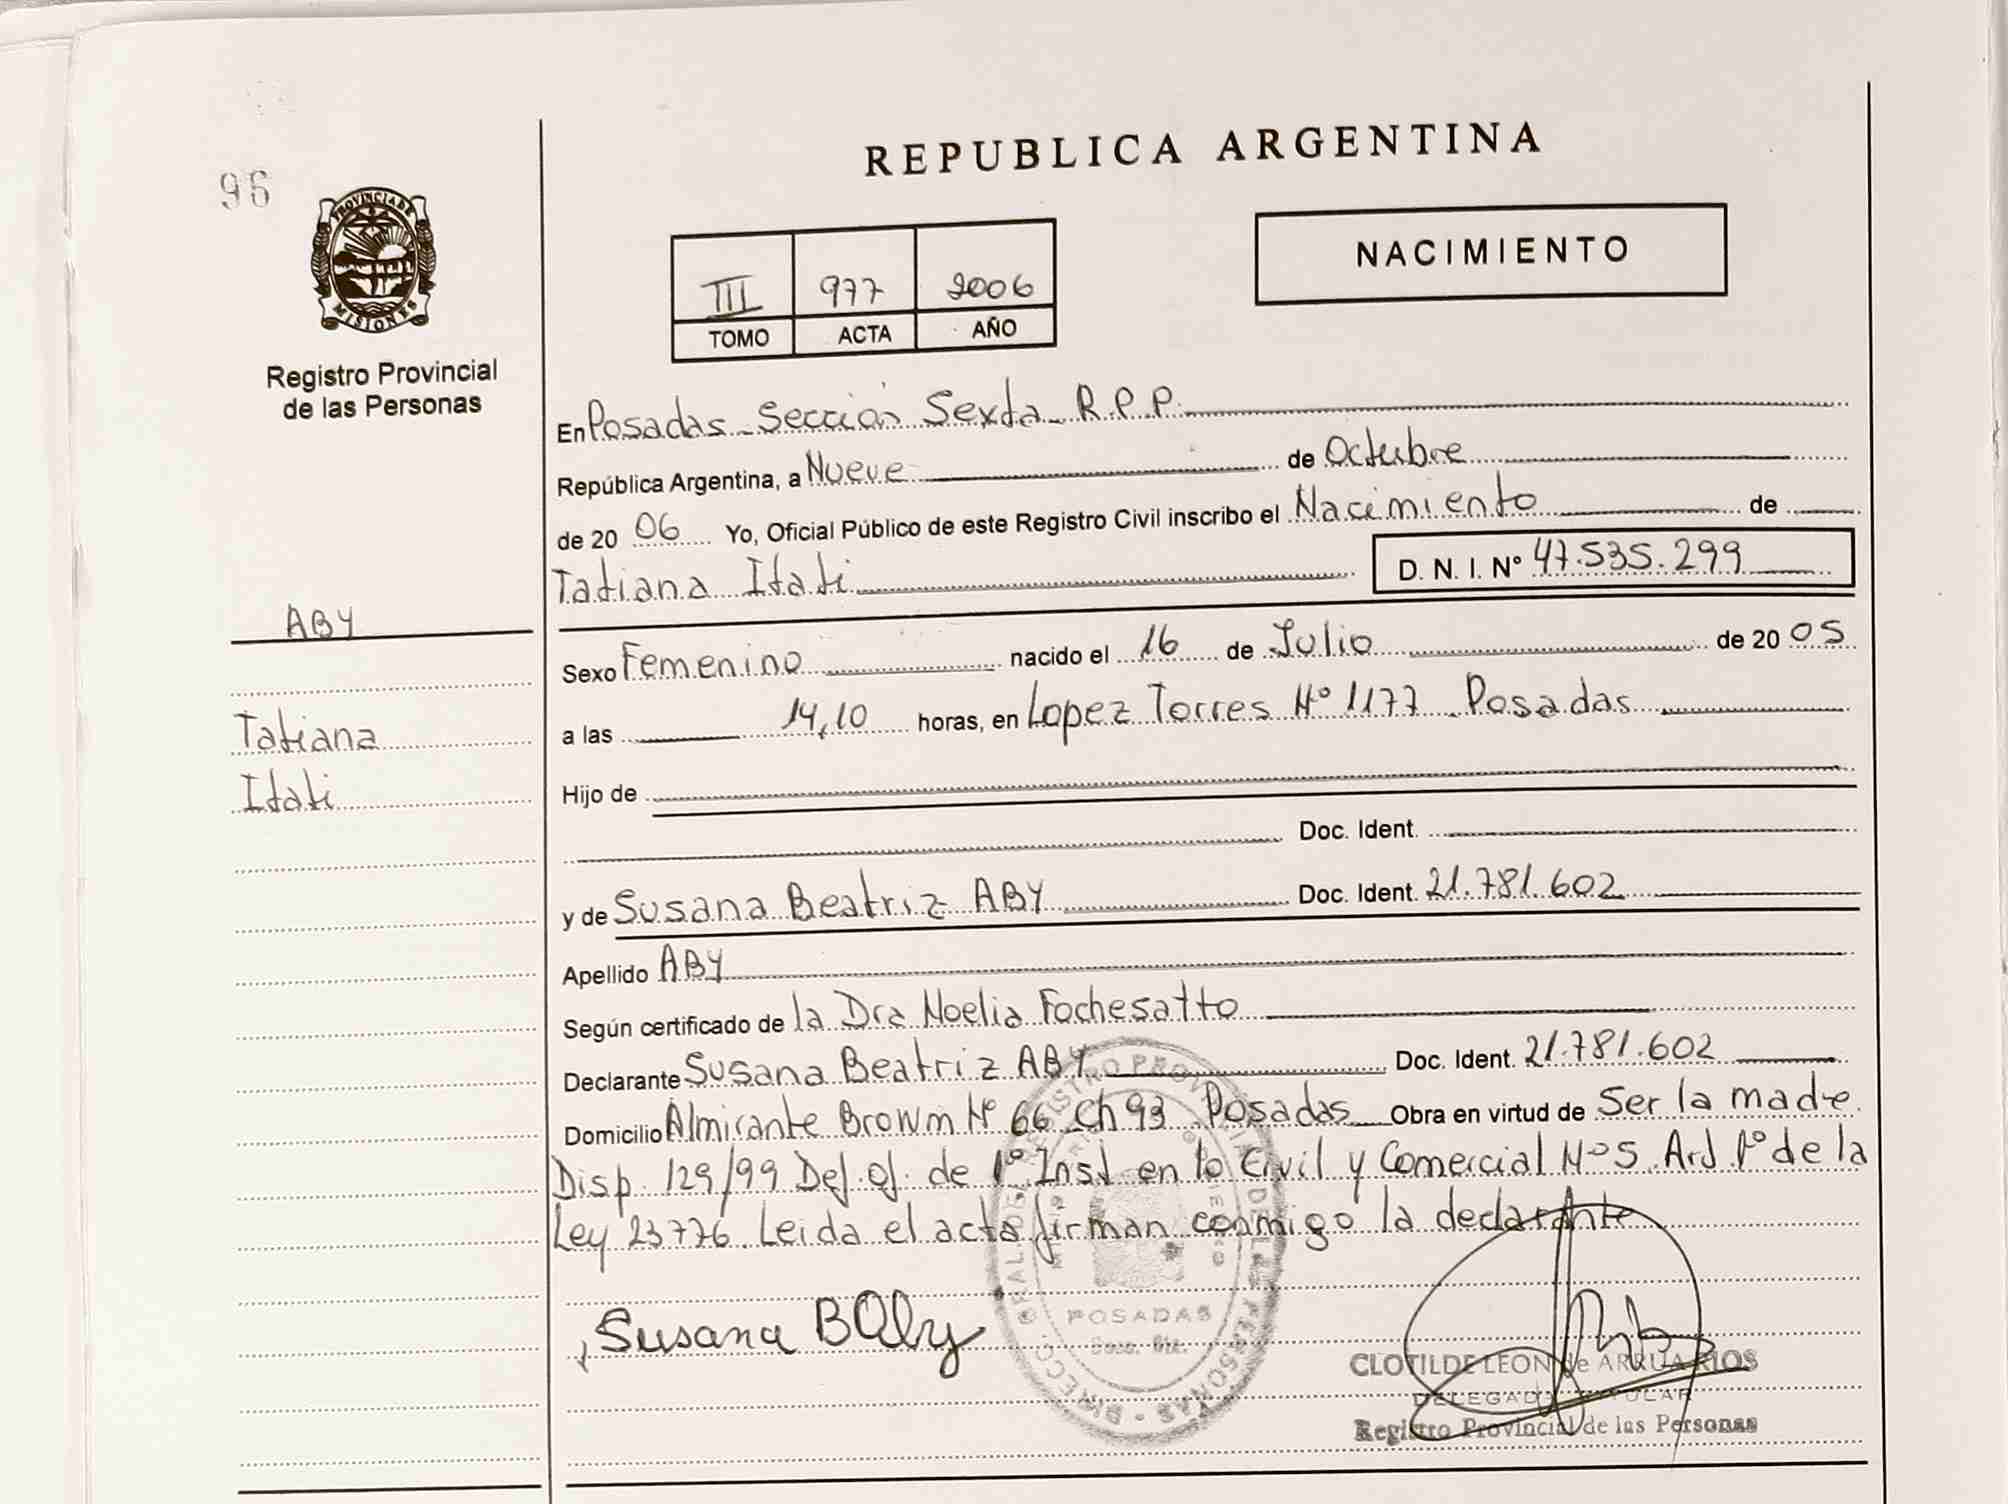 96
PROVINCIA DE
MISIONES
Registro Provincial
de las Personas
ABY
Tatiana
Itati
REPUBLICA ARGENTINA
III 977 2006
TOMO ACTA AÑO
NACIMIENTO
En Posadas - Sección Sexta R.P.P.
República Argentina, a Nueve de Octubre
de 20 06 Yo, Oficial Público de este Registro Civil inscribo el Nacimiento de
Tatiana Itati D. N. I. Nº 47.535.299
Sexo Femenino nacido el 16 de Julio de 20 05
a las 14,10 horas, en Lopez Torres Nº 1177 Posadas
Hijo de
Doc. Ident.
y de Susana Beatriz ABY Doc. Ident. 21.781.602
Apellido ABY
Según certificado de la Dra Noelia Fochesatto
Declarante Susana Beatriz ABY Doc. Ident. 21.781.602
Domicilio Almirante Browm Nº 66 Ch 93 Posadas Obra en virtud de Ser la madre
Disp. 129/99 Def. Of. de 1º Inst en lo Civil y Comercial Nº 5 Art 1º de la
Ley 23776 Leida el acta firman conmigo la declarante
Susana B Aby
POSADAS
CLOTILDE LEON de ARRUA RIOS
DELEGADA TITULAR
Registro Provincial de las Personas